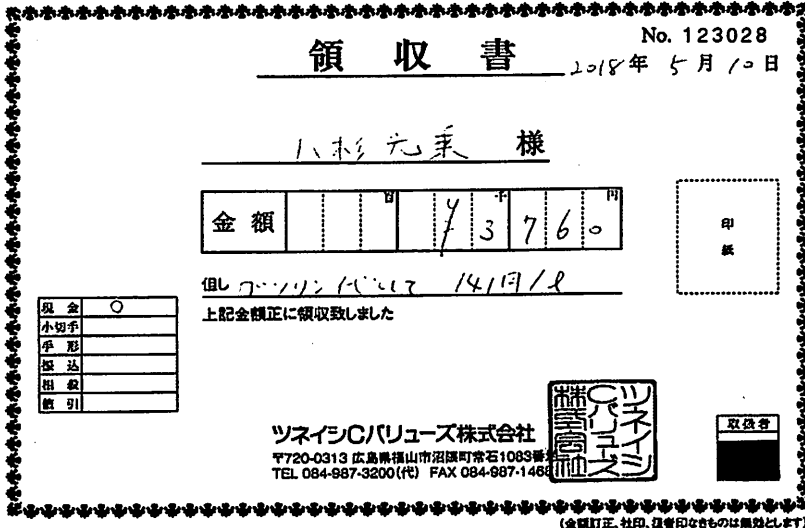 領収書
No. 123028
2018年 5月 10日
八杉元業 様
金額 百 千 円
¥3760
但し ガソリン代として 141円/ℓ
上記金額正に領収致しました
印紙
現金 ○
小切手
手形
振込
相殺
値引
ツネイシCバリューズ株式会社
〒720-0313 広島県福山市沼隈町常石1083番
TEL 084-987-3200(代) FAX 084-987-1468
ツネイシCバリューズ株式会社
取扱者
(金額訂正、社印、扱者印なきものは無効とします)